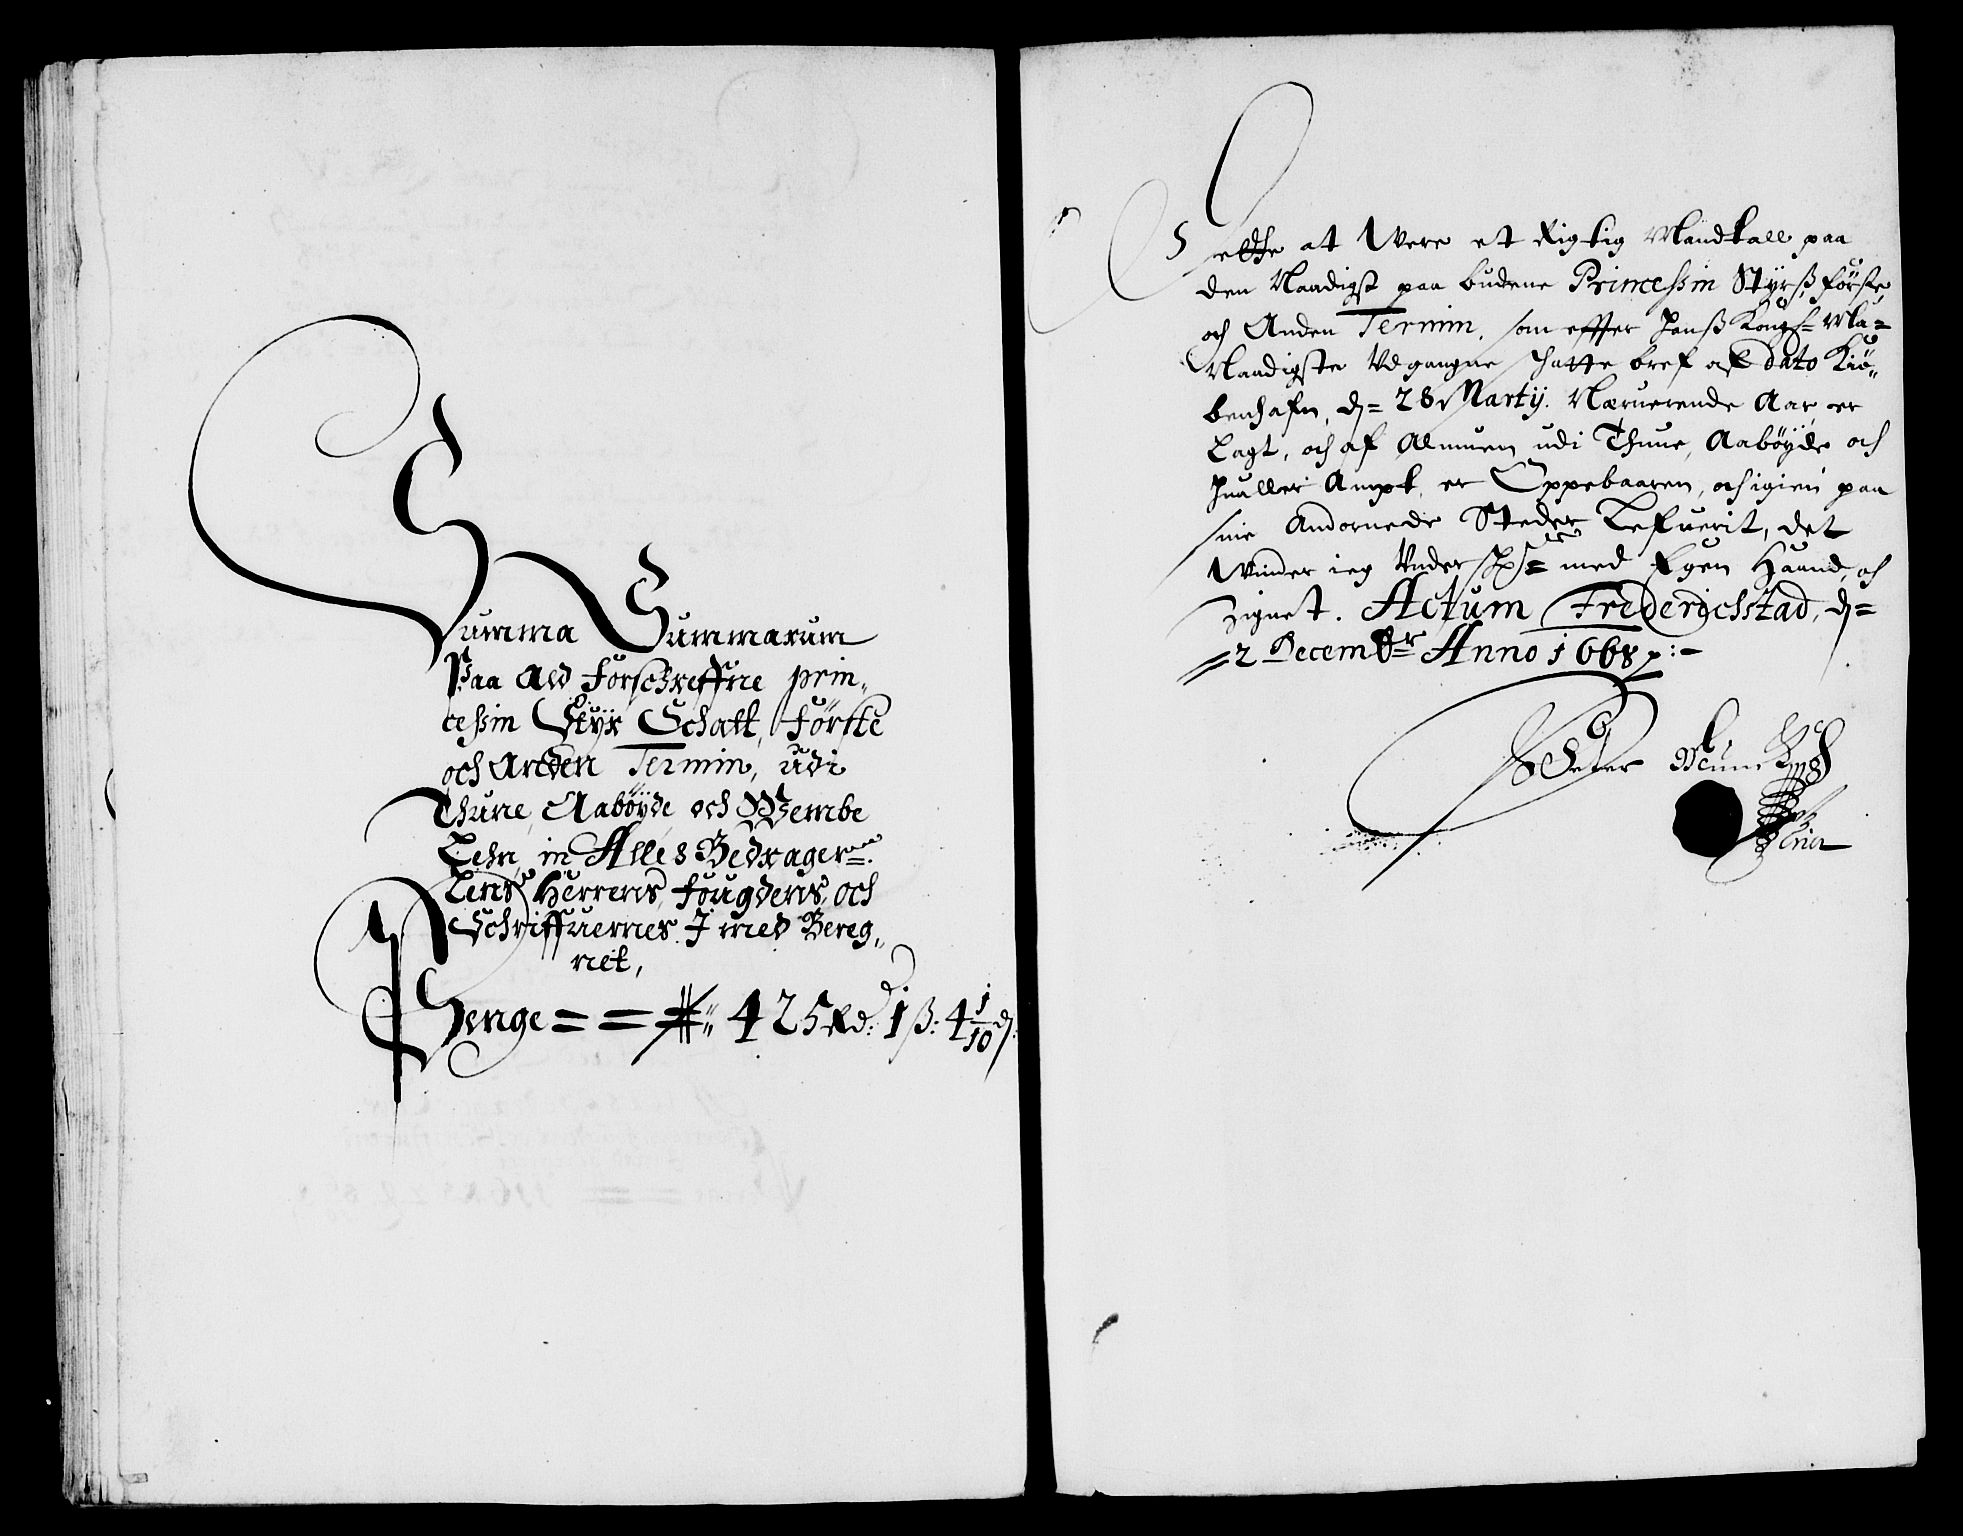 Summa Summarum
Paa Ald Forschreffne prin„
cessin Styr Schatt, Förste
och Anden Termin, udi
Thune, Aaböyde och Wembe
Lehn, in Alles Bedrager
Lens Herrens, Fougdens, och
Schriffuernes Imed Bereg„
net,
Penge = = 425 Rd: 1 ß: 4 1/10 d:
at Were et Rigtig Mandtall paa
den Naadigst paa budene Princessin Styrß, Förste
och Anden Termin, som effter Hanß Kong: Ma=
Naadigste Vdgangne Schatte bref af dato Kiö„
benhafn, d= 28 Martij. Næruerende Aar er
Lagt, och af Almuen udi Thune, Aaböyde och
Hualler Ampt, er Oppebaaren, och igien paa
sine Andornede Steder Lefuerit, det
Winder ieg Under med Egen Haand, och
Zignet. Actum Frederichstad, d=
2 Decembr Anno 1668
Peter